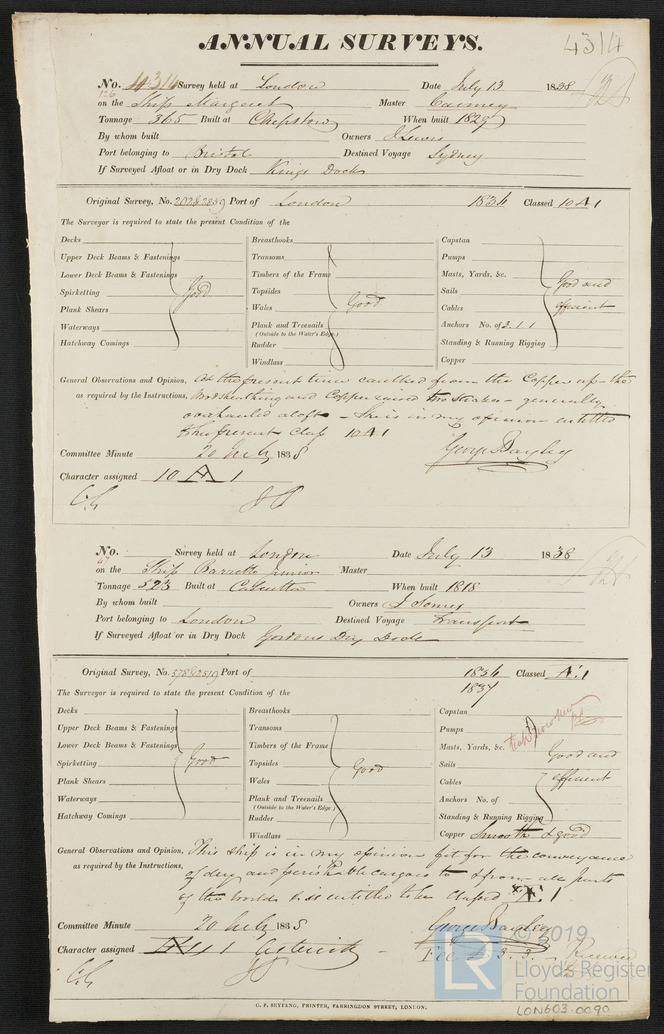 ANNUAL SURVEYS.
4314
No. 4314 Survey held at London Date July 13 1838
on the Ship Margaret Master Canney
Tonnage 365 Built at Chepstow When built 1829
By whom built Owners J Lewis
Port belonging to Bristol Destined Voyage Sydney
If Surveyed Afloat or in Dry Dock Kings Dock
Original Survey, No. Port of London 1836 Classed 10 A 1
The Surveyor is required to state the present Condition of the
Decks Breasthooks Capstan
Upper Deck Beams & Fastenings Transoms Pumps
Lower Deck Beams & Fastenings Timbers of the Frame Masts, Yards, &c. Good and
Spirketting Good Topsides Sails
Plank Shears Wales Good Cables efficient
Waterways Plank and Treenails Anchors No. of 2.1.1
(Outside to the Water's Edge)
Hatchway Comings Rudder Standing & Running Rigging
Windlass Copper
General Observations and Opinion, At the present time caulked from the Copper up - the
as required by the Instructions, Wood sheathing and Copper raised two Strakes - generally
overhauled aloft - She is in my opinion entitled
to her present class 10 A 1
Committee Minute 20 July 1838 George Bayley
Character assigned 10 A 1
No. Survey held at London Date July 13 1838
on the Ship Barretto Junior Master
Tonnage 523 Built at Calcutta When built 1818
By whom built Owners J Somes
Port belonging to London Destined Voyage Transport
If Surveyed Afloat or in Dry Dock Gordons Dry Dock
Original Survey, No. Port of 1836 Classed Æ 1
1837
The Surveyor is required to state the present Condition of the
Decks Breasthooks Capstan
Upper Deck Beams & Fastenings Transoms Pumps
Lower Deck Beams & Fastenings Timbers of the Frame Masts, Yards, &c. Good and
Spirketting Good Topsides Good Sails
Plank Shears Wales Cables efficient
Waterways Plank and Treenails Anchors No. of
(Outside to the Water's Edge)
Hatchway Comings Rudder Standing & Running Rigging
Windlass Copper Smooth & good
General Observations and Opinion, This ship is in my opinion fit for the conveyance
as required by the Instructions, of dry and perishable cargoes to & from all parts
of the world & is entitled to be classed Æ 1
Committee Minute 20 July 1838 George Bayley
Character assigned Æ 1 asterisk
© 2019
LR Lloyd's Register
Foundation
C. F. SEYFANG, PRINTER, FARRINGDON STREET, LONDON.
LON603.0090